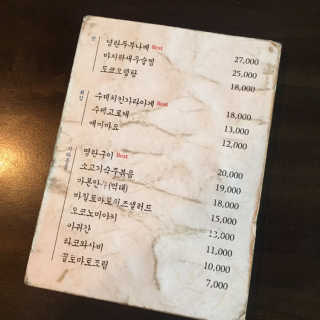 탕
명란두부나베 Best 27,000
바지락새우술찜 25,000
도쿄오뎅탕 18,000
튀김
수제치킨가라아게 Best 18,000
수제고로케 13,000
에비마요 12,000
명란구이 Best 20,000
소고기숙주볶음 19,000
18,000
바질토마토치즈샐러드 15,000
오코노미야끼 13,000
아귀간 11,000
타코와사비 10,000
꿀토마토절임 7,000